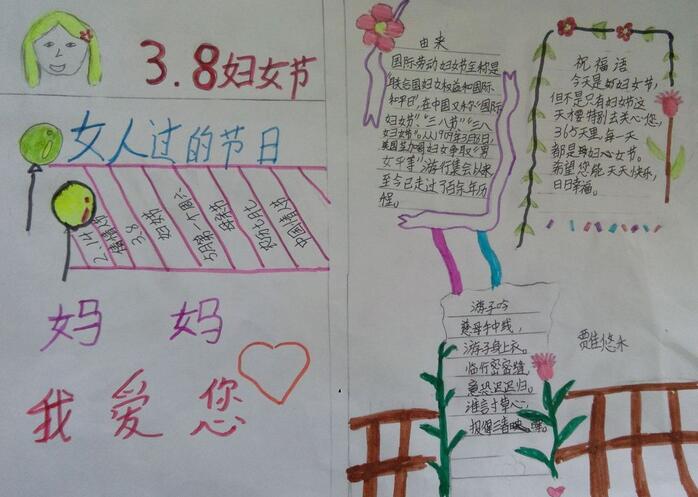 3.8妇女节
女人过的节日
2.14
情人节
3.8
妇女节
5月第一个周六
母亲节
农历七月七
中国情人节
妈 妈
我 爱 您
由来
国际劳动妇女节全称是
"联合国妇女权益和国际
和平日",在中国又称"国际
妇女节"、"三八节"、"三八
妇女节"。从1909年3月8日,
美国芝加哥妇女争取"男
女平等"游行集会以来
至今已走过了百年年历
程。
祝福语
今天是妇女节,
但不是只有妇女这
天才特别去关心您,
365天里,每一天
都是妇女节。
希望您能天天快乐,
日日幸福。
游子吟
慈母手中线,
游子身上衣。
临行密密缝,
意恐迟迟归。
谁言寸草心,
报得三春晖。
贾佳悠永